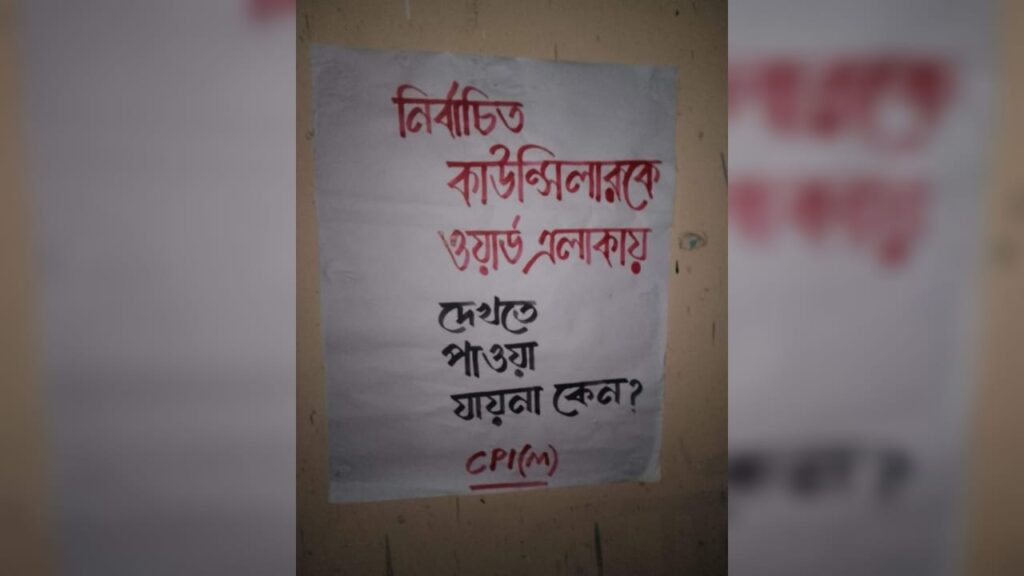 নির্বাচিত
কাউন্সিলারকে
ওয়ার্ড এলাকায়
দেখতে
পাওয়া
যায়না কেন?
CPI(M)